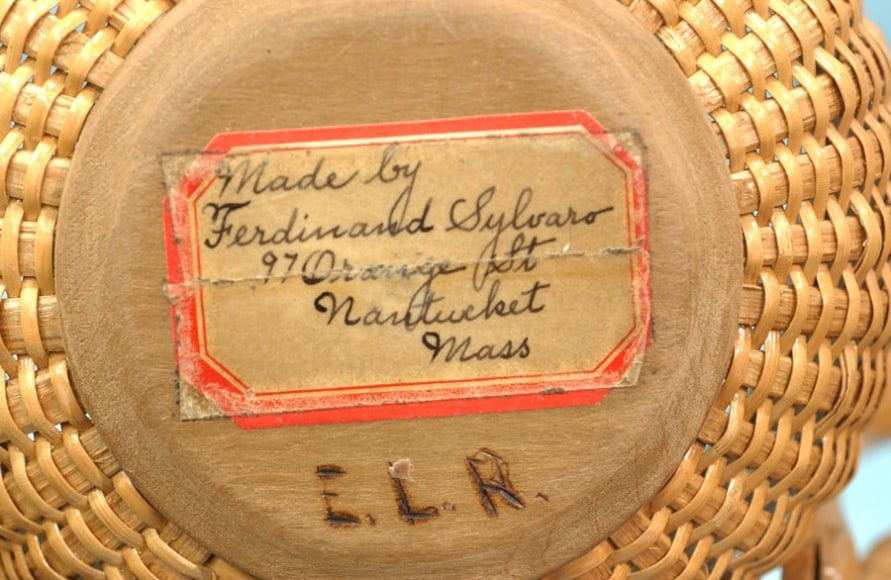 Made by
Ferdinand Sylvaro
97 Orange St
Nantucket
Mass
E.L.R.